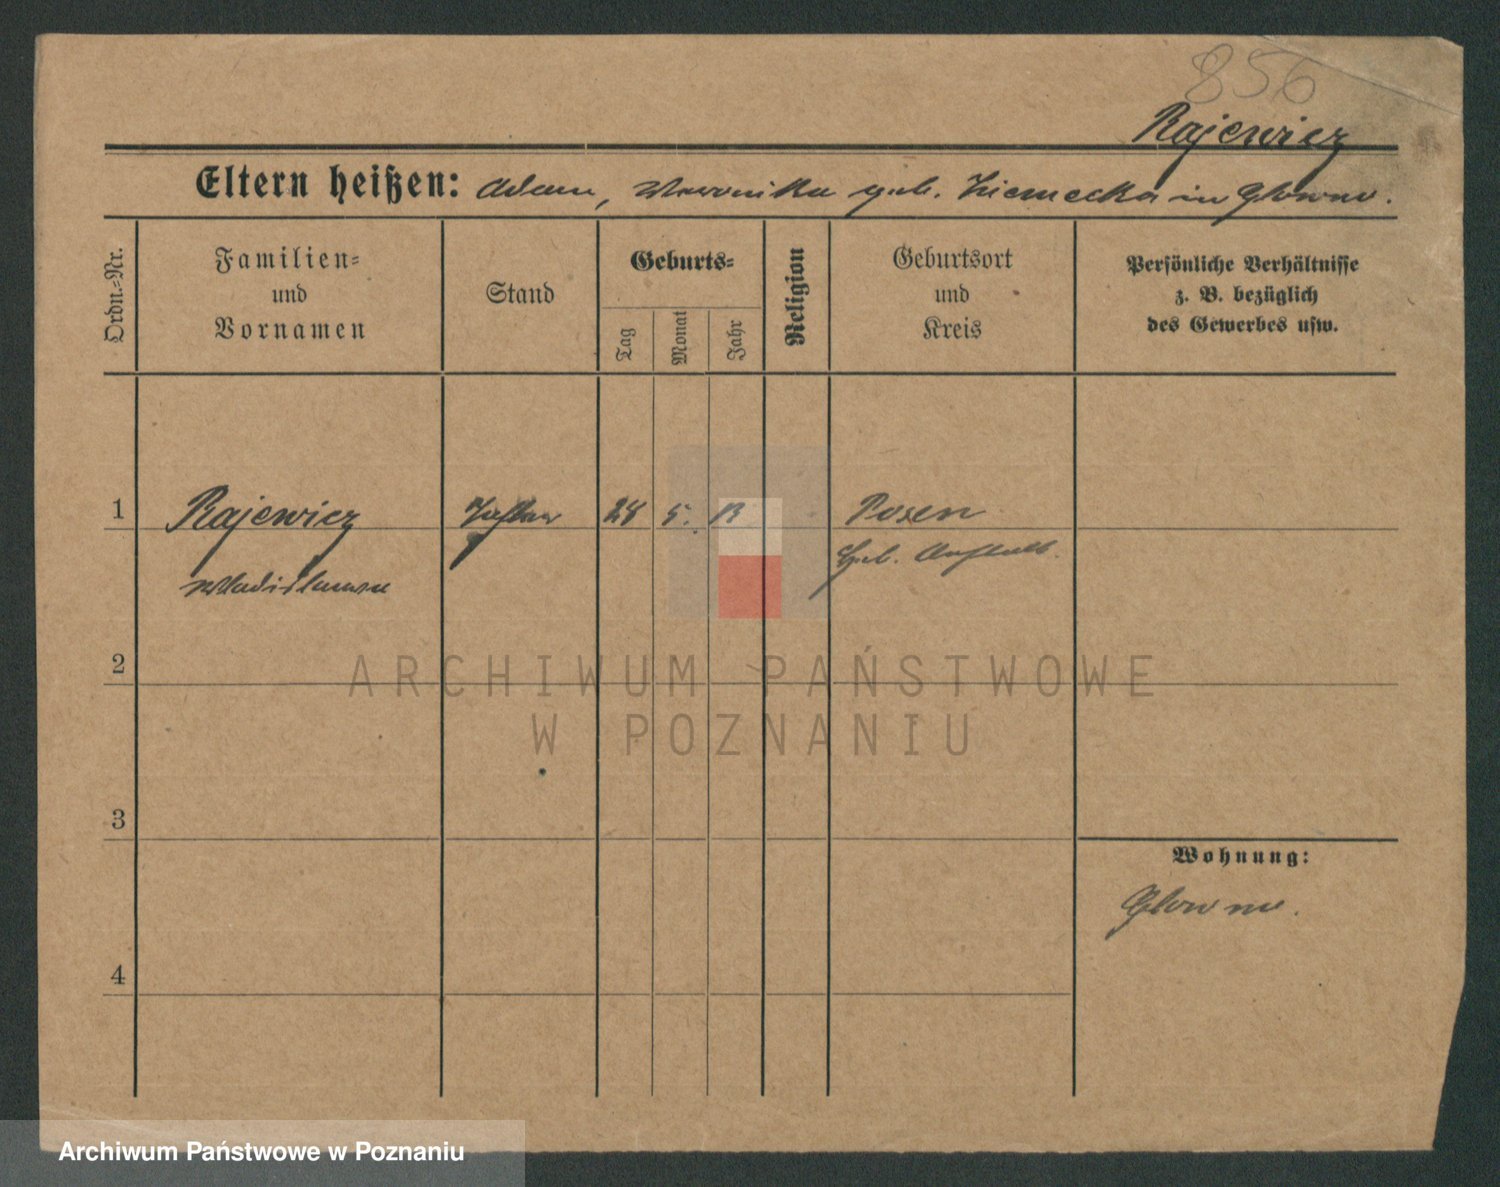 856
Rajewicz
Eltern heißen: Adam, Weronika geb. Ziemecka in Glowno.
Ordn.-Nr.
Familien- und Vornamen
Stand
Geburts-
Tag
Monat
Jahr
Religion
Geburtsort und Kreis
Persönliche Verhältnisse z. B. bezüglich des Gewerbes usw.
1 Rajewicz Tochter 28 5. 13 Posen
Wladislawa Geb. Anstalt.
2
3
Wohnung:
Glowno.
4
ARCHIWUM PAŃSTWOWE
W POZNANIU
Archiwum Państwowe w Poznaniu